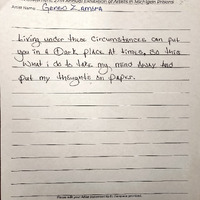 Annual Exhibition of Artists in Michigan Prisons
Artist Name: Genaro Zamora
Living under these circumstances can put
you in a Dark place at times, so this
what i do to take my mind away and
put my thoughts on paper.